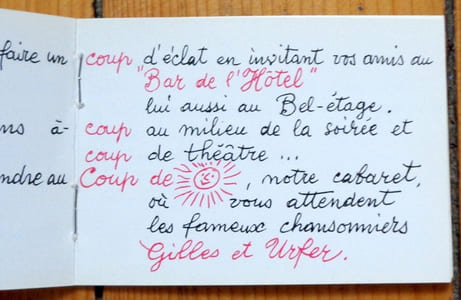 faire un coup d'éclat en invitant vos amis du
"Bar de l'Hôtel"
lui aussi au Bel-étage.
ns à-coup au milieu de la soirée et
coup de théâtre ...
ndre au Coup de , notre cabaret,
où vous attendent
les fameux chansonniers
Gilles et Urfer.